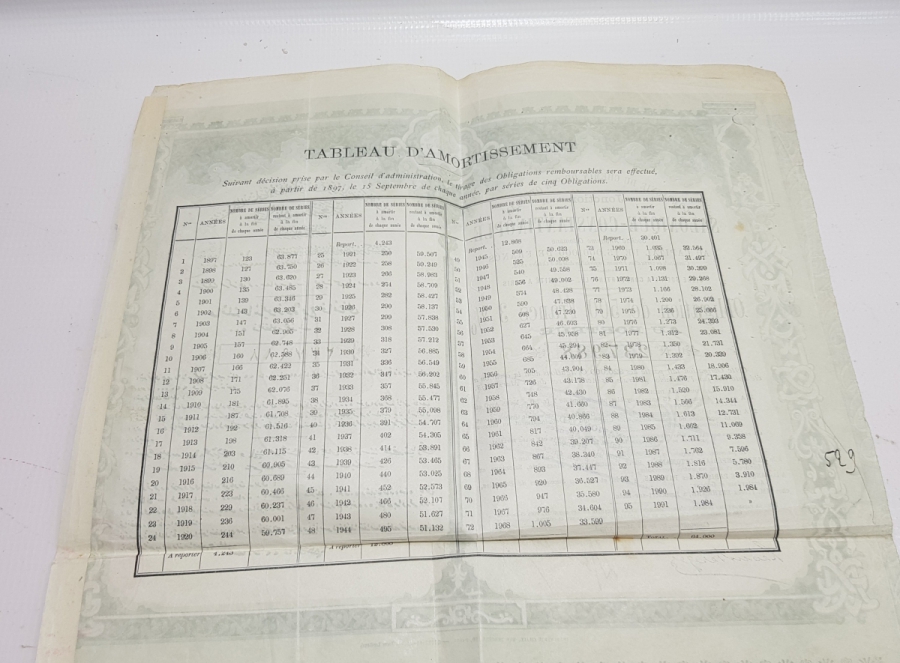 TABLEAU D'AMORTISSEMENT
Suivant décision prise par le Conseil d'administration, le tirage des Obligations remboursables sera effectué,
à partir de 1897, le 15 Septembre de chaque année, par séries de cinq Obligations.
Nos ANNÉES NOMBRE DE SÉRIES à amortir à la fin de chaque année NOMBRE DE SÉRIES restant à amortir à la fin de chaque année Nos ANNÉES NOMBRE DE SÉRIES à amortir à la fin de chaque année NOMBRE DE SÉRIES restant à amortir à la fin de chaque année Nos ANNÉES NOMBRE DE SÉRIES à amortir à la fin de chaque année NOMBRE DE SÉRIES restant à amortir à la fin de chaque année Nos ANNÉES NOMBRE DE SÉRIES à amortir à la fin de chaque année NOMBRE DE SÉRIES restant à amortir à la fin de chaque année
Report. 4.243 Report. 12.868 Report. 30.401
1 1897 123 63.877 25 1921 250 59.507 49 1945 509 50.623 73 1969 1.035 32.564
2 1898 127 63.750 26 1922 258 59.249 50 1946 525 50.098 74 1970 1.067 31.497
3 1899 130 63.620 27 1923 266 58.983 51 1947 540 49.558 75 1971 1.098 30.399
4 1900 135 63.485 28 1924 274 58.709 52 1948 556 49.002 76 1972 1.131 29.268
5 1901 139 63.346 29 1925 282 58.427 53 1949 574 48.428 77 1973 1.166 28.102
6 1902 143 63.203 30 1926 290 58.137 54 1950 590 47.838 78 1974 1.200 26.902
7 1903 147 63.056 31 1927 299 57.838 55 1951 608 47.230 79 1975 1.236 25.666
8 1904 151 62.905 32 1928 308 57.530 56 1952 627 46.603 80 1976 1.273 24.393
9 1905 157 62.748 33 1929 318 57.212 57 1953 645 45.958 81 1977 1.312 23.081
10 1906 160 62.588 34 1930 327 56.885 58 1954 664 45.294 82 1978 1.350 21.731
11 1907 166 62.422 35 1931 336 56.549 59 1955 685 44.609 83 1979 1.392 20.339
12 1908 171 62.251 36 1932 347 56.202 60 1956 705 43.904 84 1980 1.433 18.906
13 1909 175 62.076 37 1933 357 55.845 61 1957 726 43.178 85 1981 1.476 17.430
14 1910 181 61.895 38 1934 368 55.477 62 1958 748 42.430 86 1982 1.520 15.910
15 1911 187 61.708 39 1935 379 55.098 63 1959 770 41.660 87 1983 1.566 14.344
16 1912 192 61.516 40 1936 391 54.707 64 1960 794 40.866 88 1984 1.613 12.731
17 1913 198 61.318 41 1937 402 54.305 65 1961 817 40.049 89 1985 1.662 11.069
18 1914 203 61.115 42 1938 414 53.891 66 1962 842 39.207 90 1986 1.711 9.358
19 1915 210 60.905 43 1939 426 53.465 67 1963 867 38.340 91 1987 1.762 7.596
20 1916 216 60.689 44 1940 440 53.025 68 1964 893 37.447 92 1988 1.816 5.780
21 1917 223 60.466 45 1941 452 52.573 69 1965 920 36.527 93 1989 1.870 3.910
22 1918 229 60.237 46 1942 466 52.107 70 1966 947 35.580 94 1990 1.926 1.984
23 1919 236 60.001 47 1943 480 51.627 71 1967 976 34.604 95 1991 1.984 »
24 1920 244 59.757 48 1944 495 51.132 72 1968 1.005 33.599
A reporter 4.243 A reporter 12.868 Total 64.000
529